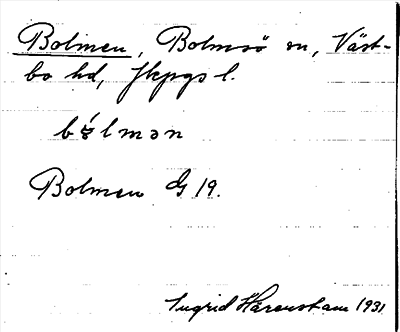 Bolmen, Bolmsö sn, Väst-
bo hd, Jkpgs l.
bólmən
Bolmen G 19.
Ingrid Härenstam 1931